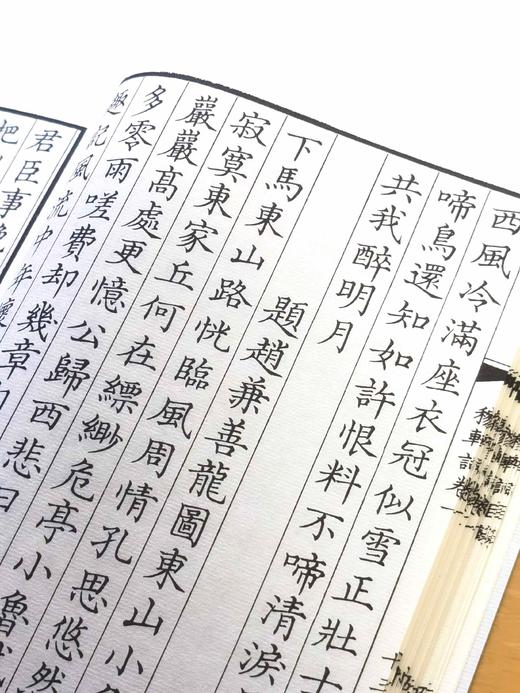 西風冷滿座衣冠似雪正壯士
啼鳥還知如許恨料不啼清淚
共我醉明月
題趙兼善龍圖東山小
下馬東山路恍臨風周情孔思悠然
寂寞東家丘何在縹緲危亭小魯
巖巖高處更憶公歸西悲日
多零雨嗟費却幾章
趣記風流中年懷
君臣事晚
稼軒詞卷一